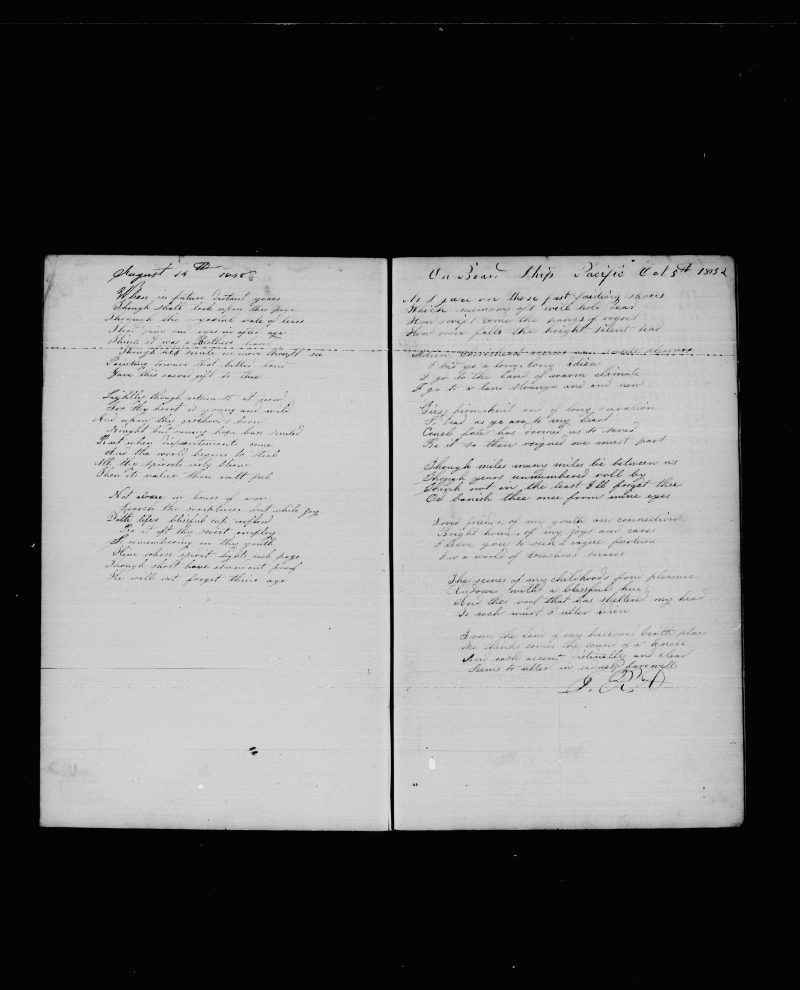 August 14th 1858
When in future distant years
Though shalt look upon this page
Through the vale of tears
That your eyes in after age
Think it was a Brothers hand
Though art smile
Pointing toward that better land
Gave this sacred gift to thee
Lightly though at now
For thy heart is young and wild
And upon thy
Nought but sunny hope has smiled
But when disapointments come
And the world begins to steal
All thy spirits only bloom
Then its value thou wilt feel
Not alone in hours of woe
Search the scriptures but while joy
Doth lifes blissful cup
Be it oft thy sweet employ
remembering in thy youth
Him whose spirit lights each page
Though shalt have abundant proof
He will not forget thine age
On Board Ship Pacific Oct 5th 1852
As I gaze on those fast fading shores
Which memory oft will hold dear
How swift come the pangs of regret
How oft falls the bright silent tear
Adieu cherished scenes
I bid ye a long long adieu
I go to the land of warm climate
I go to a land strange and and new
of long duration
So dear as ye are to my heart
Cruel fate has doomed us to sever
Be it so then resigned we must part
Though miles many miles lie between us
Though years unnumbered roll by
Think not in the least I'll forget thee
Or banish thee once from mine eyes
Loved friends of my youth and connection
Bright home of my joys and cares
I leave you to seek a vague fortune
In a world of treacherous snares
The scenes of my childhoods fond pleasure
with a blissful hue
And the roof that has shelterd my head
To each must I utter adieu
From the of my birth place
the winds comes the sound of a knell
And each accent distinctly and clear
Seems to utter in sadness farewell